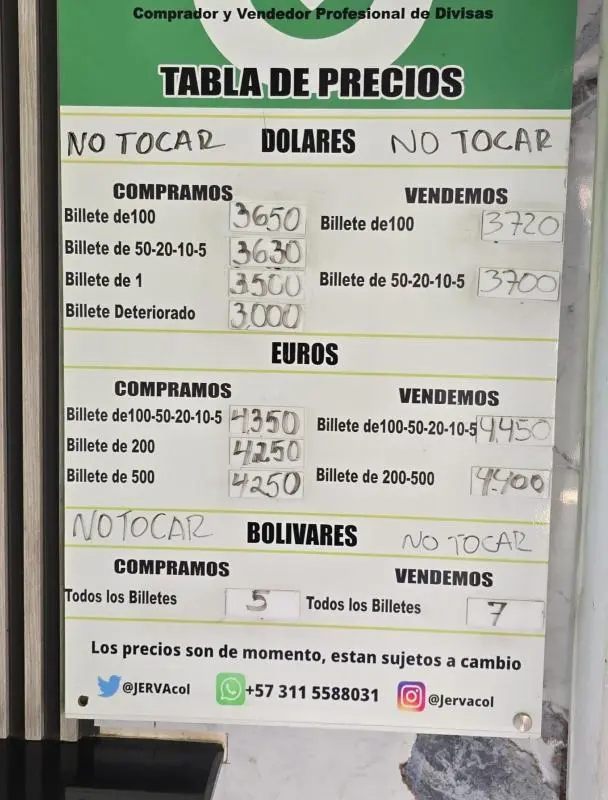 Comprador y Vendedor Profesional de Divisas
TABLA DE PRECIOS
NO TOCAR DOLARES NO TOCAR
COMPRAMOS VENDEMOS
Billete de100 3650 Billete de100 3720
Billete de 50-20-10-5 3630
Billete de 1 3500 Billete de 50-20-10-5 3700
Billete Deteriorado 3,000
EUROS
COMPRAMOS VENDEMOS
Billete de100-50-20-10-5 4,350 Billete de100-50-20-10-5 4,450
Billete de 200 4250
Billete de 500 4250 Billete de 200-500 4,400
NO TOCAR BOLIVARES NO TOCAR
COMPRAMOS VENDEMOS
Todos los Billetes 5 Todos los Billetes 7
Los precios son de momento, estan sujetos a cambio
@JERVAcol +57 311 5588031 @Jervacol